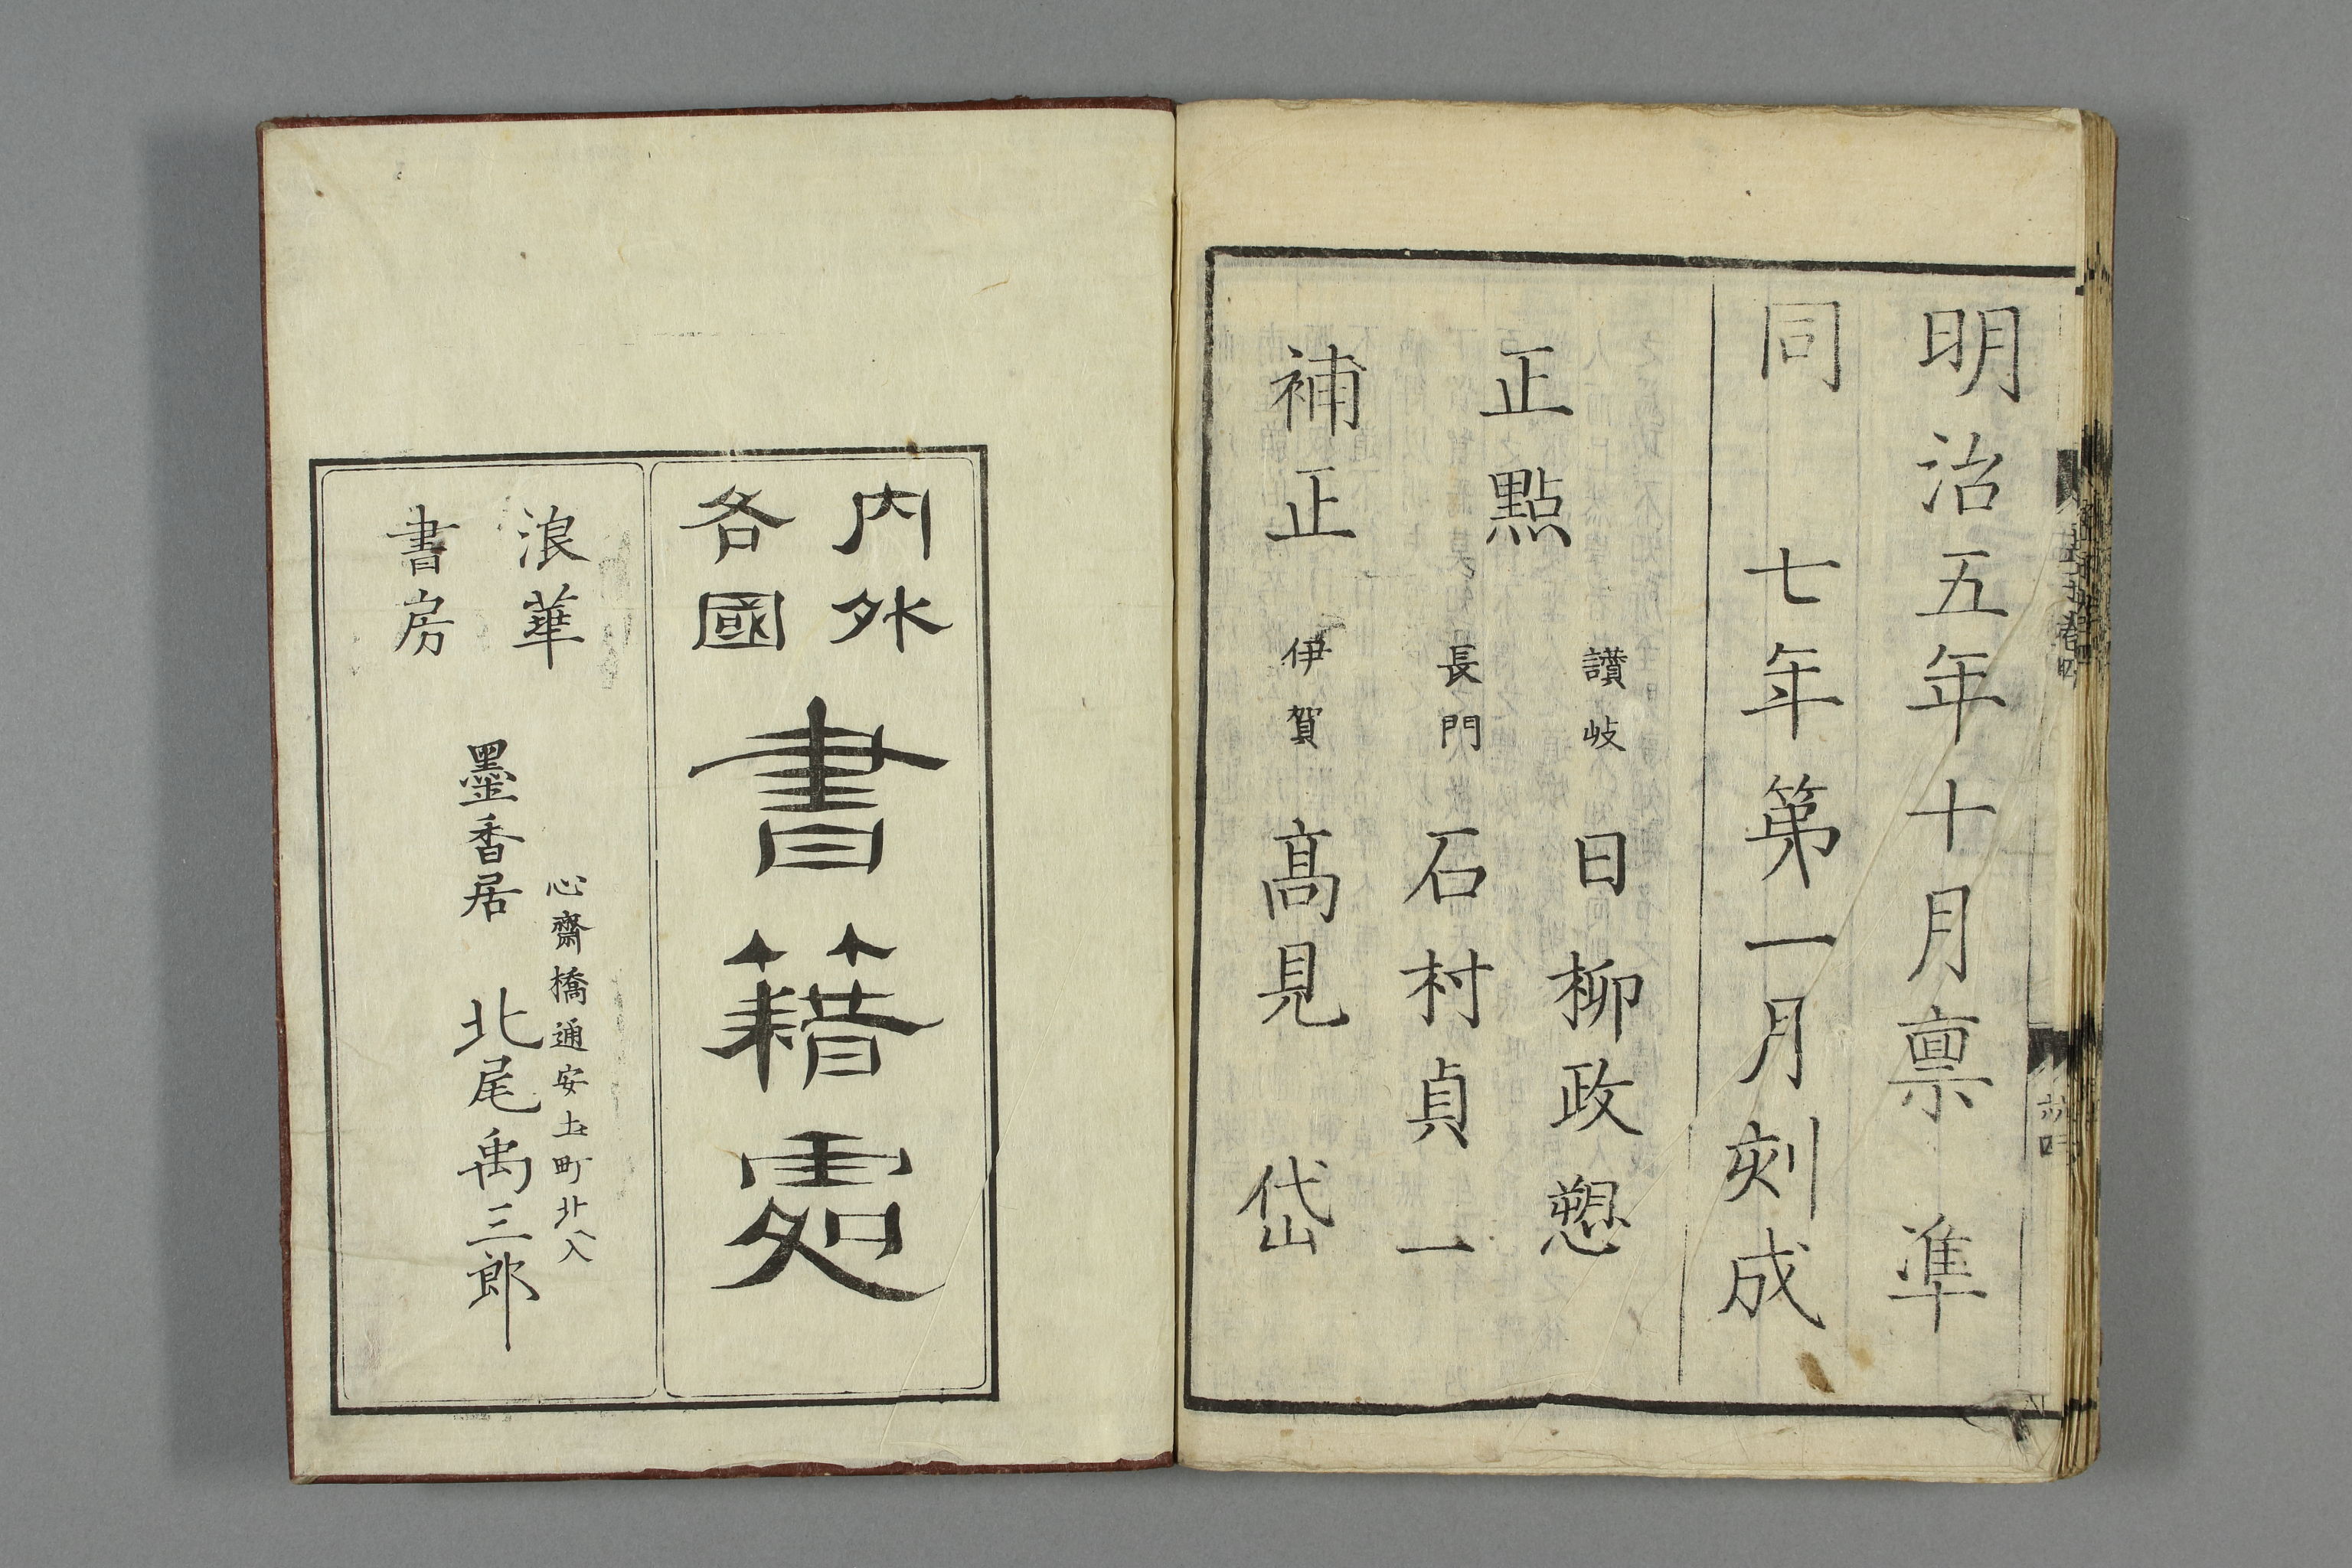 明治五年十月禀準
同七年第一月刻成
正點
讃岐 日柳政愬
長門 石村貞一
補正
伊賀 髙見岱
内外
各國
書籍處
浪華
書房
心齋橋通安土町北入
墨香居 北尾禹三郎